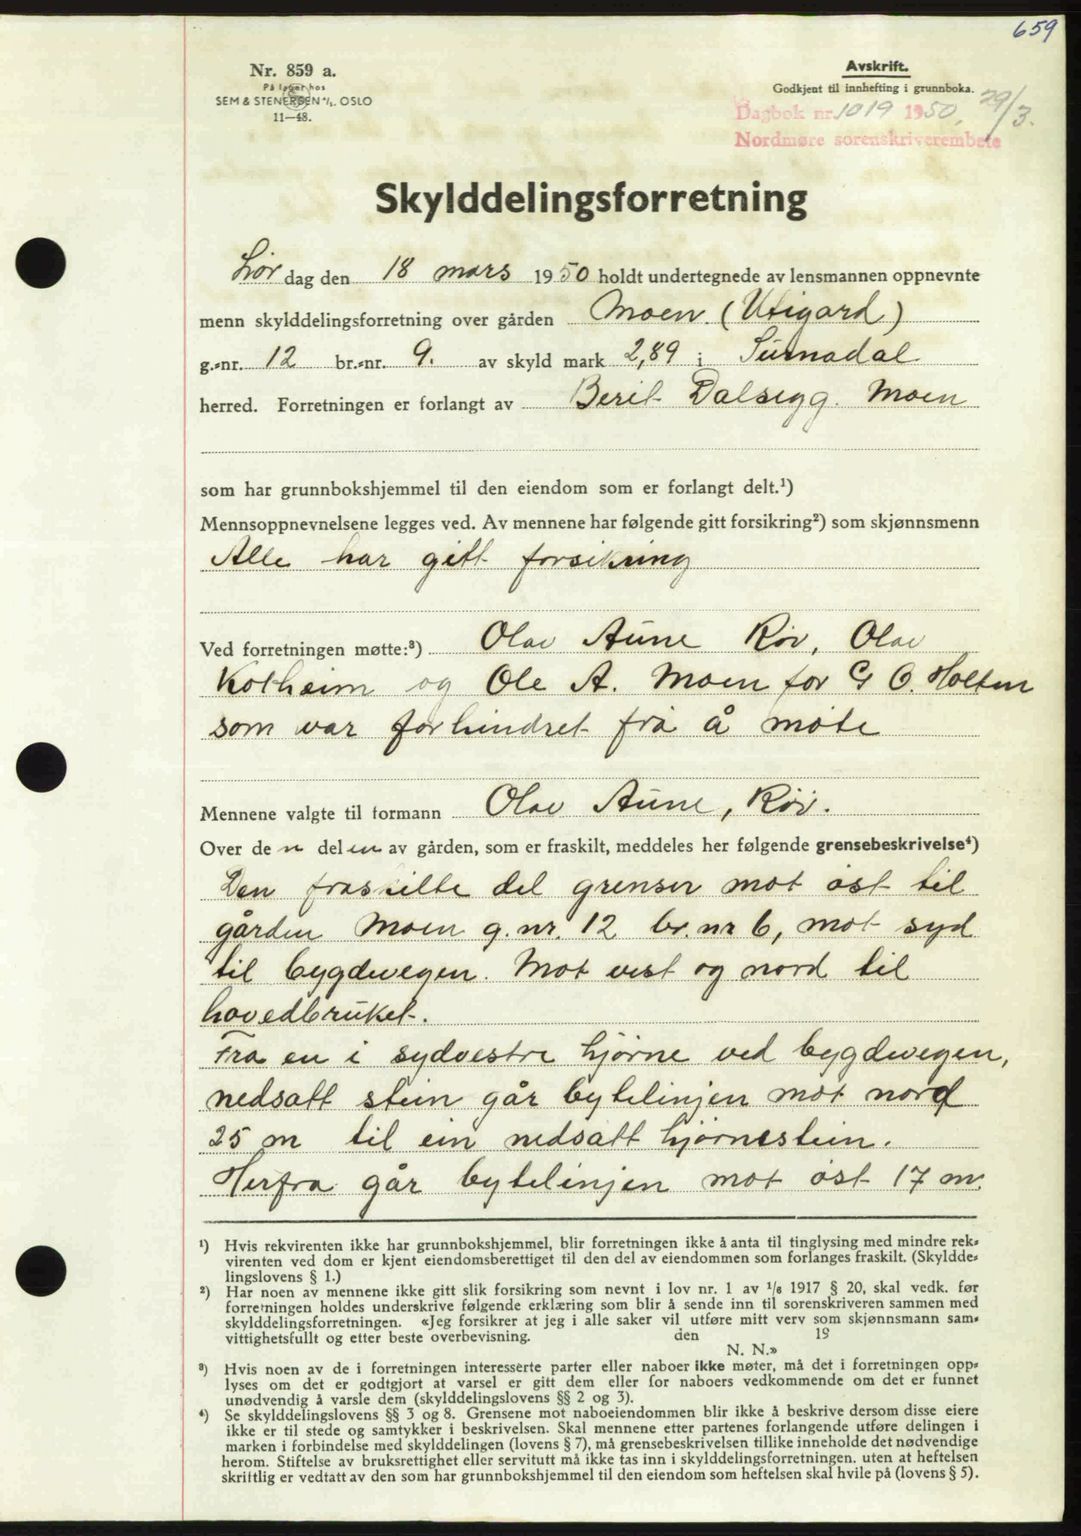 659
Nr. 859 a.
På lager hos
SEM & STENERSEN A/S. OSLO
11—48.
Avskrift.
Godkjent til innhefting i grunnboka.
Dagbok nr. 1019 1950, 29/3.
Nordmøre sorenskriverembete
Skylddelingsforretning
Lør dag den 18 mars 1950 holdt undertegnede av lensmannen oppnevnte
menn skylddelingsforretning over gården Moen (Utigard)
g.-nr. 12 br.-nr. 9. av skyld mark 2,89 i Surnadal
herred. Forretningen er forlangt av Berit Dalsegg. Moen
som har grunnbokshjemmel til den eiendom som er forlangt delt.¹)
Mennsoppnevnelsene legges ved. Av mennene har følgende gitt forsikring²) som skjønnsmenn
Alle har gitt forsikring
Ved forretningen møtte:³) Olav Aune Røv, Olav
Kotheim og Ole A. Moen for G O. Holten
som var forhindret frå å møte
Mennene valgte til formann Olav Aune, Røv.
Over den delen av gården, som er fraskilt, meddeles her følgende grensebeskrivelse⁴)
Den fraskilte del grenser mot øst til
gården Moen g.nr. 12 br.nr 6, mot syd
til bygdevegen. Mot vest og nord til
hovedbruket.
Fra en i sydvestre hjørne ved bygdevegen,
nedsatt stein går bytelinjen mot nord
25 m til ein nedsatt hjørnestein.
Herfra går bytelinjen mot øst 17 m.
¹) Hvis rekvirenten ikke har grunnbokshjemmel, blir forretningen ikke å anta til tinglysing med mindre rek-
virenten ved dom er kjent eiendomsberettiget til den del av eiendommen som forlanges fraskilt. (Skyldde-
lingslovens § 1.)
²) Har noen av mennene ikke gitt slik forsikring som nevnt i lov nr. 1 av 1/8 1917 § 20, skal vedk. før
forretningen holdes underskrive følgende erklæring som blir å sende inn til sorenskriveren sammen med
skylddelingsforretningen. «Jeg forsikrer at jeg i alle saker vil utføre mitt verv som skjønnsmann sam-
vittighetsfullt og etter beste overbevisning. den 19
N. N.»
³) Hvis noen av de i forretningen interesserte parter eller naboer ikke møter, må det i forretningen opp-
lyses om det er godtgjort at varsel er gitt dem eller for naboers vedkommende om det er funnet
unødvendig å varsle dem (skylddelingslovens §§ 2 og 3).
⁴) Se skylddelingslovens §§ 3 og 8. Grensene mot naboeiendommen blir ikke å beskrive dersom disse eiere
ikke er til stede og samtykker i beskrivelsen. Skal mennene etter partenes forlangende utføre delingen i
marken i forbindelse med skylddelingen (lovens § 7), må grensebeskrivelsen tillike inneholde det nødvendige
herom. Stiftelse av bruksrettighet eller servitutt må ikke tas inn i skylddelingsforretningen, uten at heftelsen
skriftlig er vedtatt av den som har grunnbokshjemmel til den eiendom som heftelsen skal hvile på (lovens § 5).